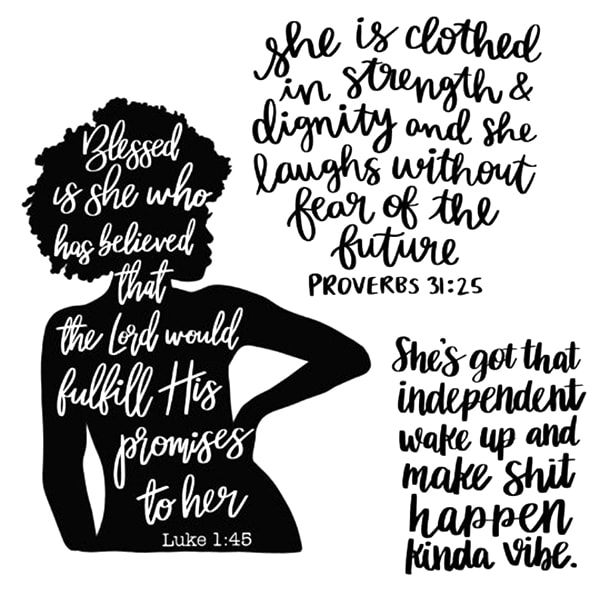 Blessed
is she who
has believed
that
the Lord would
fulfill His
promises
to her
Luke 1:45
she is clothed
in strength &
dignity and she
laughs without
fear of the
future
PROVERBS 31:25
She's got that
independent
wake up and
make shit
happen
kinda vibe.